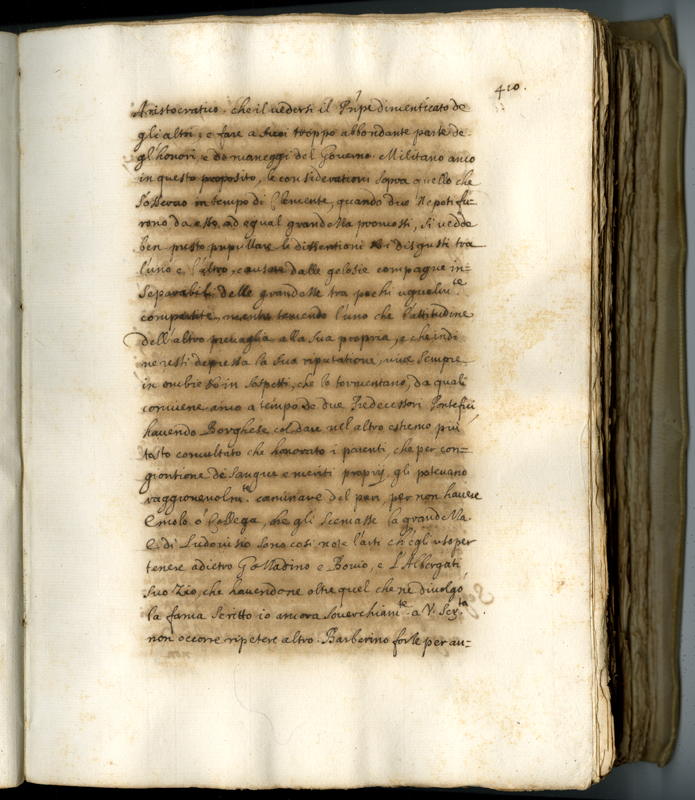 420.
Aristocratico. che il vedersi il Prñpe dimenticato de
gli altri, e fare a suoi troppo abbondante parte de
gl'honori, e de maneggi del Governo. Militano anco
in questo proposito, le considerationi sopra quello che
s'osservò in tempo di Clemente, quando due Nepoti fu=
rono da esso ad egual grandezza promossi, si vedde
ben presto pupillare le dissentioni et i disgusti tra
l'uno e l'altro, causate dalle gelosie compagne in=
separabili delle grandezze tra pochi ugualmte
compartite, mentre temendo l'uno che l'attitudine
dell'altro prevaglia alla sua propria, e che indi
ne resti depressa la sua riputatione, vive sempre
in ombre et in sospetti, che lo tormentano, da quali
conviene anco a tempo de due Predecessori Pontefici
havendo Borghese col dare nel altro estremo più
tosto conculcato che honorato i parenti, che per con=
giontione de sangue e meriti proprij gli potevano
raggionevolmte caminare del pari, per non havere
emolo ò Collega, che gli scemasse la grandezza.
E di Ludovisio sono così note l'arti ch'egli usò per
tenere adietro Gozzadino e Bovio, e L'Albergati
suo Zio, che havendone oltre quel che ne divolgò
la fama scritto io ancora soverchiamte a V. Sermta
non occorre ripetere altro. Barberino forse per au=